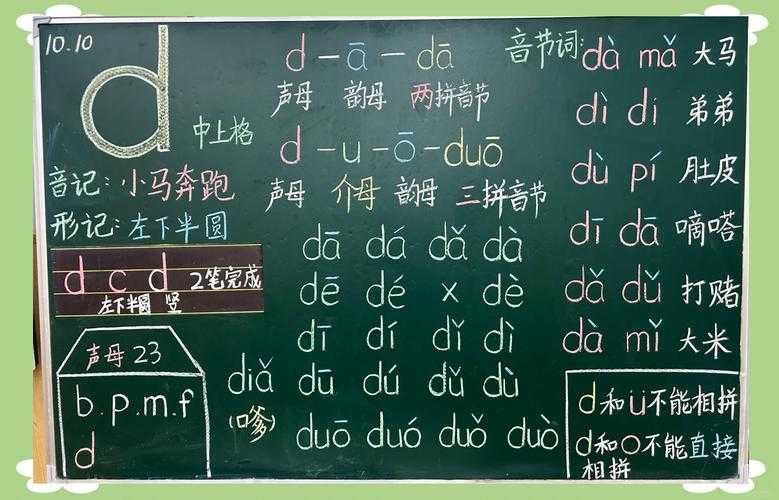 10.10
d
中上格
音记:小马奔跑
形记:左下半圆
d c d 2笔完成
左下半圆 竖
声母 23
b.p.m.f
d
d – ā – dā
声母 韵母 两拼音节
d – u – ō – duō
声母 介母 韵母 三拼音节
dā dá dǎ dà
dē dé x dè
dī dí dǐ dì
diǎ dū dú dǔ dù
(嗲) duō duó duǒ duò
音节词: dà mǎ 大马
dì di 弟弟
dù pí 肚皮
dī dā 嘀嗒
dǎ dǔ 打赌
dà mǐ 大米
d和ü不能相拼
d和o不能直接
相拼